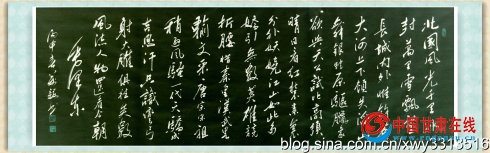 北国风光千里冰
封万里雪飘望
长城内外惟余
大河上下顿失滔
舞银蛇原驰蜡象
欲与天公试比高须
晴日看红装素裹
分外妖娆江山如此多
娇引无数英雄竞
折腰惜秦皇汉武略
输文采唐宗宋祖
稍逊风骚一代天骄
吉思汗只识弯弓
射大雕俱往矣数
风流人物还看今朝
毛泽东
中国甘肃在线
blog.sina.com.cn/xwy3313516